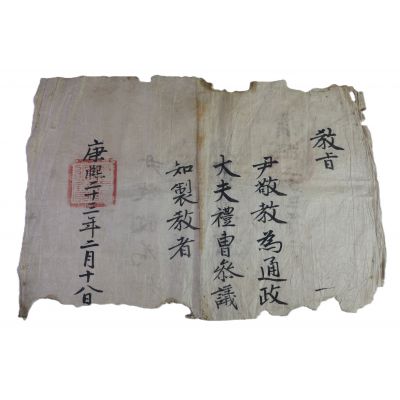 敎旨
尹敬敎為通政
大夫禮曹叅議
知製敎者
康熙二十二年二月十八日